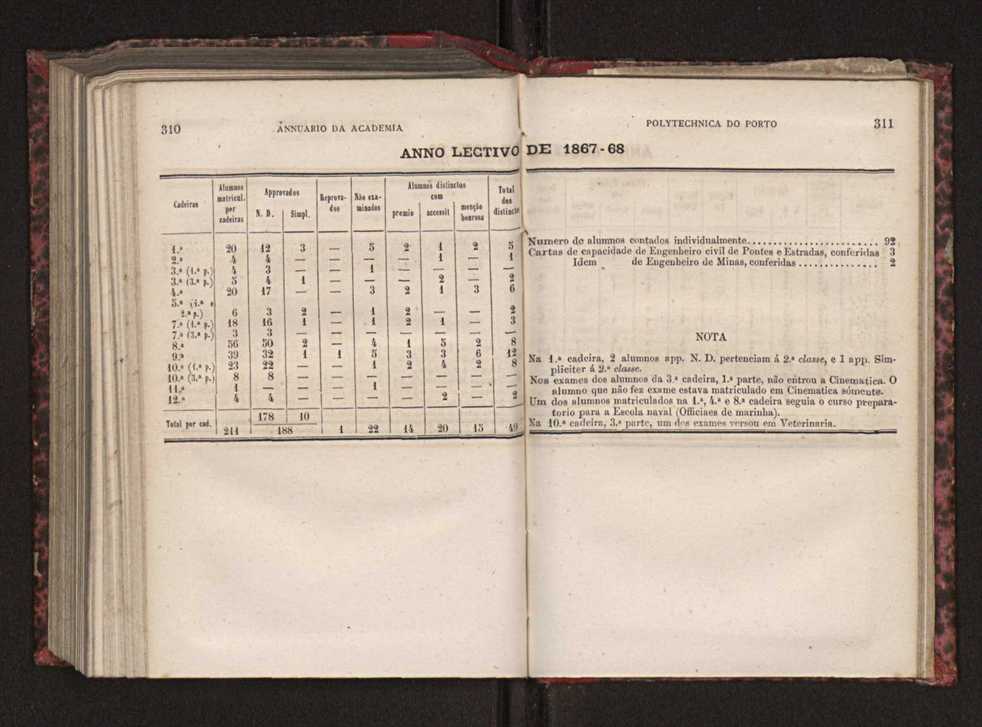 310 ANNUARIO DA ACADEMIA
ANNO LECTIVO DE 1867-68
Cadeiras | Alumnos matricul. por cadeiras | Approvados N. D. | Simpl. | Reprovados | Não examinados | Alumnos distinctos com premio | accessit | menção honrosa | Total dos distinctos
1.ª 20 12 3 — 5 2 1 2 5
2.ª 4 4 — — — — 1 — 1
3.ª (1.ª p.) 4 3 — — 1 — — — —
3.ª (3.ª p.) 5 4 1 — — — 2 — 2
4.ª 20 17 — — 3 2 1 3 6
5.ª (1.ª e
2.ª p.) 6 3 2 — 1 2 — — 2
7.ª (1.ª p.) 18 16 1 — 1 2 1 — 3
7.ª (3.ª p.) 3 3 — — — — — — —
8.ª 56 50 2 — 4 1 5 2 8
9.ª 39 32 1 1 5 3 3 6 12
10.ª (1.ª p.) 23 22 — — 1 2 4 2 8
10.ª (3.ª p.) 8 8 — — — — — — —
11.ª 1 — — — 1 — — — —
12.ª 4 4 — — — — 2 — 2
178 10
Total por cad. 211 188 1 22 14 20 15 49
POLYTECHNICA DO PORTO 311
Numero de alumnos contados individualmente....................... 92
Cartas de capacidade de Engenheiro civil de Pontes e Estradas, conferidas 3
Idem de Engenheiro de Minas, conferidas .............. 2
NOTA
Na 1.ª cadeira, 2 alumnos app. N. D. pertenciam á 2.ª classe, e 1 app. Sim-
pliciter á 2.ª classe.
Nos exames dos alumnos da 3.ª cadeira, 1.ª parte, não entrou a Cinematica. O
alumno que não fez exame estava matriculado em Cinematica sómente.
Um dos alumnos matriculados na 1.ª, 4.ª e 8.ª cadeira seguia o curso prepara-
torio para a Escola naval (Officiaes de marinha).
Na 10.ª cadeira, 3.ª parte, um dos exames versou em Veterinaria.